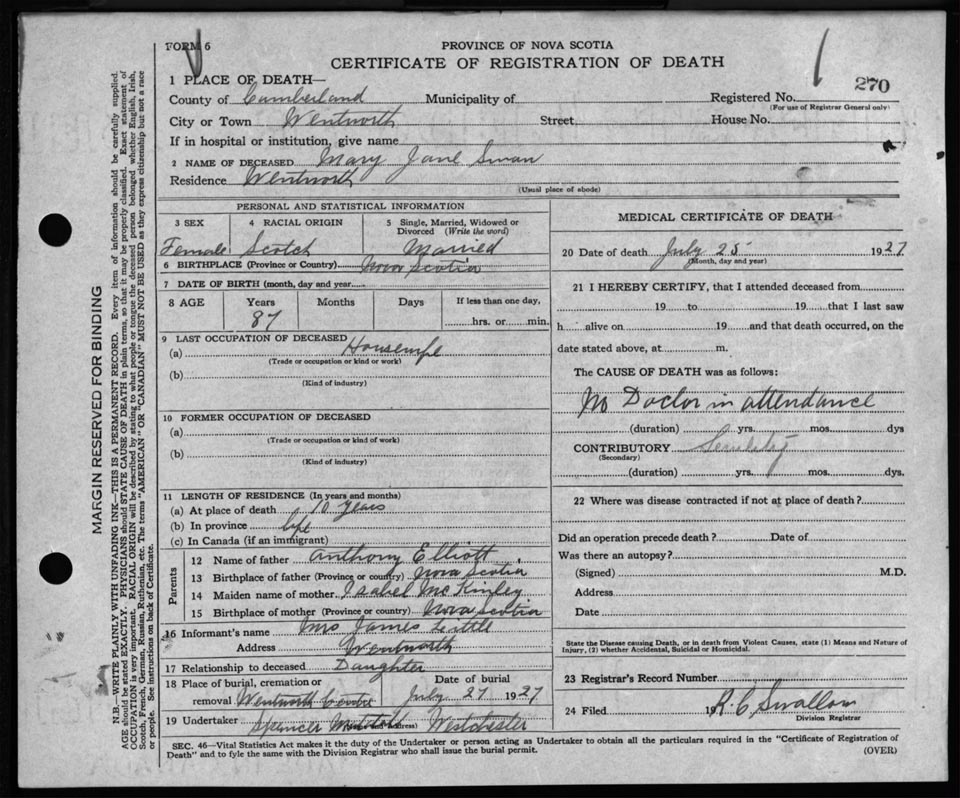 FORM 6
PROVINCE OF NOVA SCOTIA
CERTIFICATE OF REGISTRATION OF DEATH
270
1 PLACE OF DEATH—
County of Cumberland Municipality of Registered No.
(For use of Registrar General only)
City or Town Wentworth Street House No.
If in hospital or institution, give name
2 NAME OF DECEASED Mary Jane Swan
Residence Wentworth
(Usual place of abode)
PERSONAL AND STATISTICAL INFORMATION
3 SEX 4 RACIAL ORIGIN 5 Single, Married, Widowed or Divorced (Write the word)
Female Scotch Married
6 BIRTHPLACE (Province or Country) Nova Scotia
7 DATE OF BIRTH (month, day and year)
8 AGE Years Months Days If less than one day,
87 hrs. or min.
9 LAST OCCUPATION OF DECEASED
(a) Housewife
(Trade or occupation or kind or work)
(b)
(Kind of industry)
10 FORMER OCCUPATION OF DECEASED
(a)
(Trade or occupation or kind of work)
(b)
(Kind of industry)
11 LENGTH OF RESIDENCE (In years and months)
(a) At place of death 10 years
(b) In province life
(c) In Canada (if an immigrant)
Parents
12 Name of father Anthony Elliott
13 Birthplace of father (Province or country) Nova Scotia
14 Maiden name of mother Isabel McKinley
15 Birthplace of mother (Province or country) Nova Scotia
16 Informant's name Mrs James Little
Address Wentworth
17 Relationship to deceased Daughter
18 Place of burial, cremation or removal Wentworth Centre
Date of burial July 27 1927
19 Undertaker Spencer (Address) Westchester
MEDICAL CERTIFICATE OF DEATH
20 Date of death July 25 1927
(Month, day and year)
21 I HEREBY CERTIFY, that I attended deceased from
19 to 19 that I last saw
h alive on 19 and that death occurred, on the
date stated above, at m.
The CAUSE OF DEATH was as follows:
No Doctor in attendance
(duration) yrs. mos. dys
CONTRIBUTORY Senility
(Secondary)
(duration) yrs. mos. dys.
22 Where was disease contracted if not at place of death?
Did an operation precede death? Date of
Was there an autopsy?
(Signed) M.D.
Address
Date
State the Disease causing Death, or in death from Violent Causes, state (1) Means and Nature of
Injury, (2) whether Accidental, Suicidal or Homicidal.
23 Registrar's Record Number
24 Filed 19 R. C. Swallow
Division Registrar
SEC. 46—Vital Statistics Act makes it the duty of the Undertaker or person acting as Undertaker to obtain all the particulars required in the "Certificate of Registration of
Death" and to fyle the same with the Division Registrar who shall issue the burial permit.
(OVER)
MARGIN RESERVED FOR BINDING
N.B.—WRITE PLAINLY WITH UNFADING INK—THIS IS A PERMANENT RECORD. Every item of information should be carefully supplied.
AGE should be stated EXACTLY. PHYSICIANS should STATE CAUSE OF DEATH in plain terms, so that it may be properly classified. Exact statement of
OCCUPATION is very important. RACIAL ORIGIN will be described by stating to what people or tongue the deceased person belonged whether English, Irish,
Scotch, French, German, Russian, Ruthenian, etc. The terms "AMERICAN" OR "CANADIAN" MUST NOT BE USED as they express citizenship but not a race
or people. See instructions on back of Certificate.